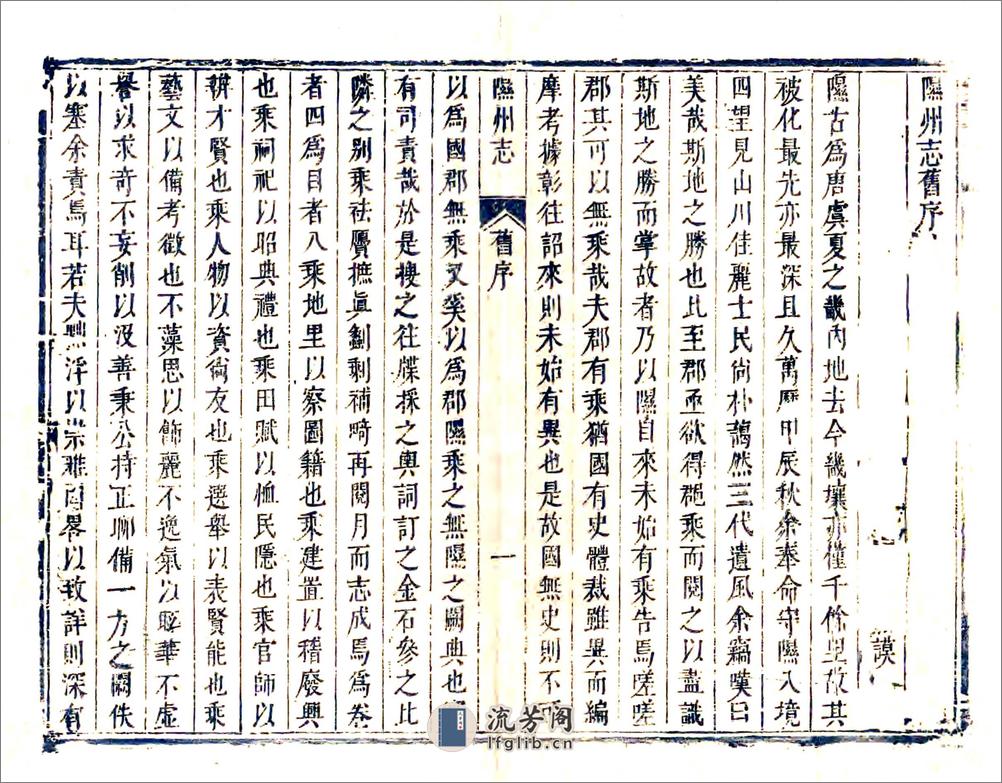 隰州志舊序
謨
隰古爲唐虞夏之畿內地去今畿壤亦僅千餘里故其
被化最先亦最深且久萬曆甲辰秋余奉命守隰入境
四望見山川佳麗士民尚朴藹然三代遺風余竊嘆曰
美哉斯地之勝也比至郡亟欲得郡乘而閱之以盡識
斯地之勝而掌故者乃以隰自來未始有乘告焉嗟嗟
郡其可以無乘哉夫郡有乘猶國有史體裁雖異而編
摩考據彰往詔來則未始有異也是故國無史則不
隰州志
舊序
一
以爲國郡無乘又奚以爲郡隰乘之無隰之闕典也
有司責哉於是搜之往牒採之輿詞訂之金石參之比
隣之別乘祛贗摭眞劖剩補畸再閱月而志成焉爲卷
者四爲目者八乘地里以察圖籍也乘建置以稽廢興
也乘祠祀以昭典禮也乘田賦以恤民隱也乘官師以
辨才賢也乘人物以資尚友也乘選舉以表賢能也乘
藝文以備考徵也不藻思以飾麗不逸氣以騁華不虛
譽以求奇不妄削以沒善秉公持正聊備一方之闕佚
以塞余責焉耳若夫黜浮以崇雅因畧以致詳則深有
流芳阁
lfglib.cn